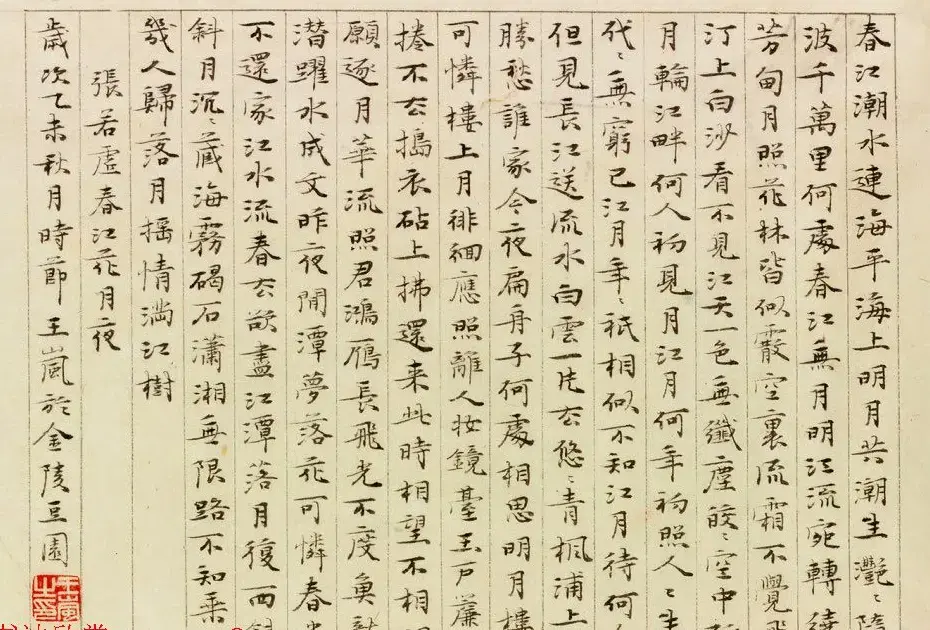 春江潮水連海平海上明月共潮生灔〻
波千萬里何處春江無月明江流宛轉繞
芳甸月照花林皆似霰空裏流霜不覺飛
汀上白沙看不見江天一色無纖塵皎〻空中
月輪江畔何人初見月江月何年初照人〻生
代〻無窮已江月年〻祇相似不知江月待何
但見長江送流水白雲一片去悠〻青楓浦上
勝愁誰家今夜扁舟子何處相思明月樓
可憐樓上月徘徊應照離人妝鏡臺玉戶簾
捲不去擣衣砧上拂還来此時相望不相
願逐月華流照君鴻雁長飛光不度魚
潛躍水成文昨夜閒潭夢落花可憐春
不還家江水流春去欲盡江潭落月復西
斜月沉〻藏海霧碣石瀟湘無限路不知乘
幾人歸落月摇情滿江樹
張若虛春江花月夜
歲次乙未秋月時節王嵐於金陵豆園
王嵐之印